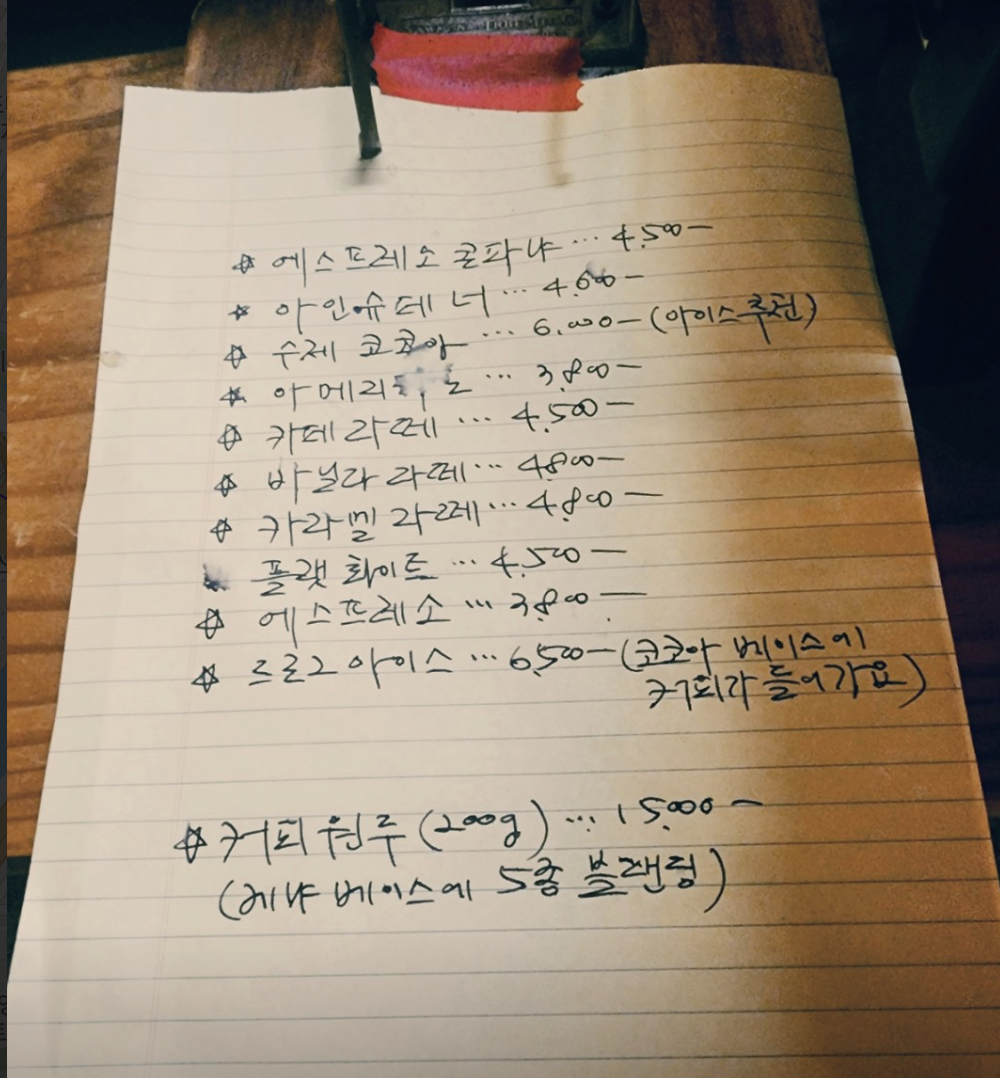 ☆ 에스프레소 콘파냐 ... 4.500-
☆ 아인슈페너 ... 4.600-
☆ 수제 코코아 ... 6.000- (아이스 추천)
☆ 아메리카노 ... 3.800-
☆ 카페라떼 ... 4.500-
☆ 바닐라 라떼 ... 4.800-
☆ 카라멜 라떼 ... 4.800-
플랫 화이트 ... 4.500-
☆ 에스프레소 ... 3.800-
☆ 아이스 ... 6.500- (코코아 베이스에
커피가 들어가요)
☆ 커피 원두 (200g) ... 15.000-
(케냐 베이스에 5종 블랜딩)